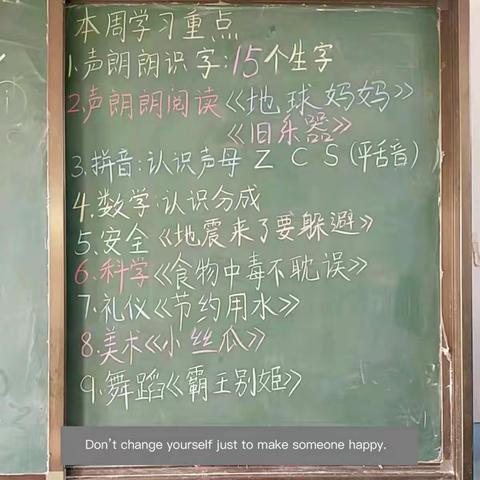 本周学习重点
1.声朗朗识字:15个生字
2.声朗朗阅读《地球妈妈》
《旧乐器》
3.拼音:认识声母 Z C S (平舌音)
4.数学:认识分成
5.安全《地震来了要躲避》
6.科学《食物中毒不耽误》
7.礼仪《节约用水》
8.美术《小丝瓜》
9.舞蹈《霸王别姬》
Don't change yourself just to make someone happy.